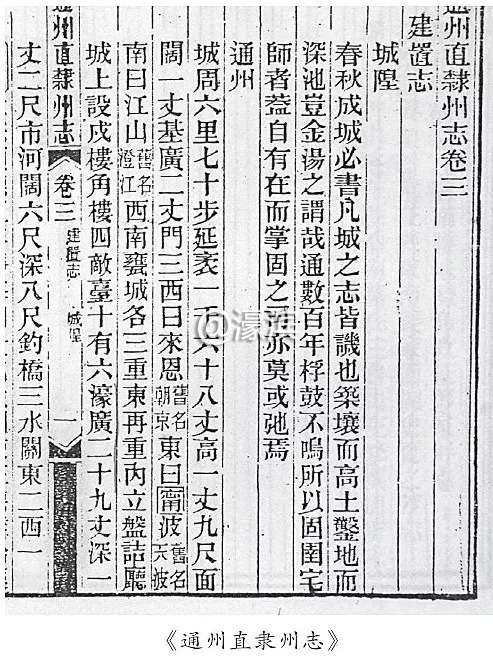 通州直隸州志卷三
建置志
城隍
春秋成城必書凡城之志皆譏也築壤而高土鑿地而
深池豈金湯之謂哉通數百年桴鼓不鳴所以固圉宅
師者葢自有在而掌固之司亦莫或弛焉
通州
城周六里七十步延袤一千六十八丈高一丈九尺面
闊一丈基廣二丈門三西曰來恩舊名朝京東曰甯波舊名天波
南曰江山舊名澄江西南甕城各三重東再重內立盤詰廳
城上設戍樓角樓四敵臺十有六濠廣二十九丈深一
通州直隸州志 卷三 建置志 城隍 一
丈二尺市河闊六尺深八尺釣橋三水關東二西一
《通州直隶州志》